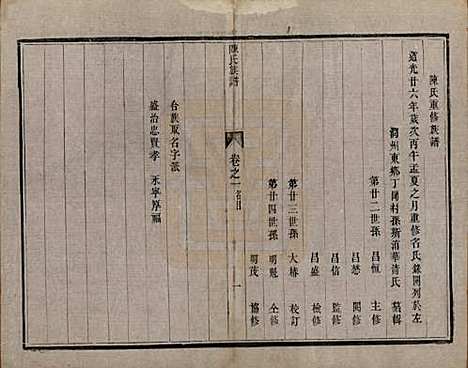 陳氏重修族譜
道光廿六年歲次丙午孟夏之月重修名氏錄開列於左
潤州東鄉丁岡村孫斯滄華清氏 纂輯
第廿二世孫 昌恒 主修
昌懋 閱修
昌信 監修
昌盛 檢修
第廿三世孫 大椿 校訂
第廿四世孫 明魁 仝修
明茂 協修
陳氏族譜
卷之一 名目
一
合族取名字派
盛治忠賢孝 永寧厚福